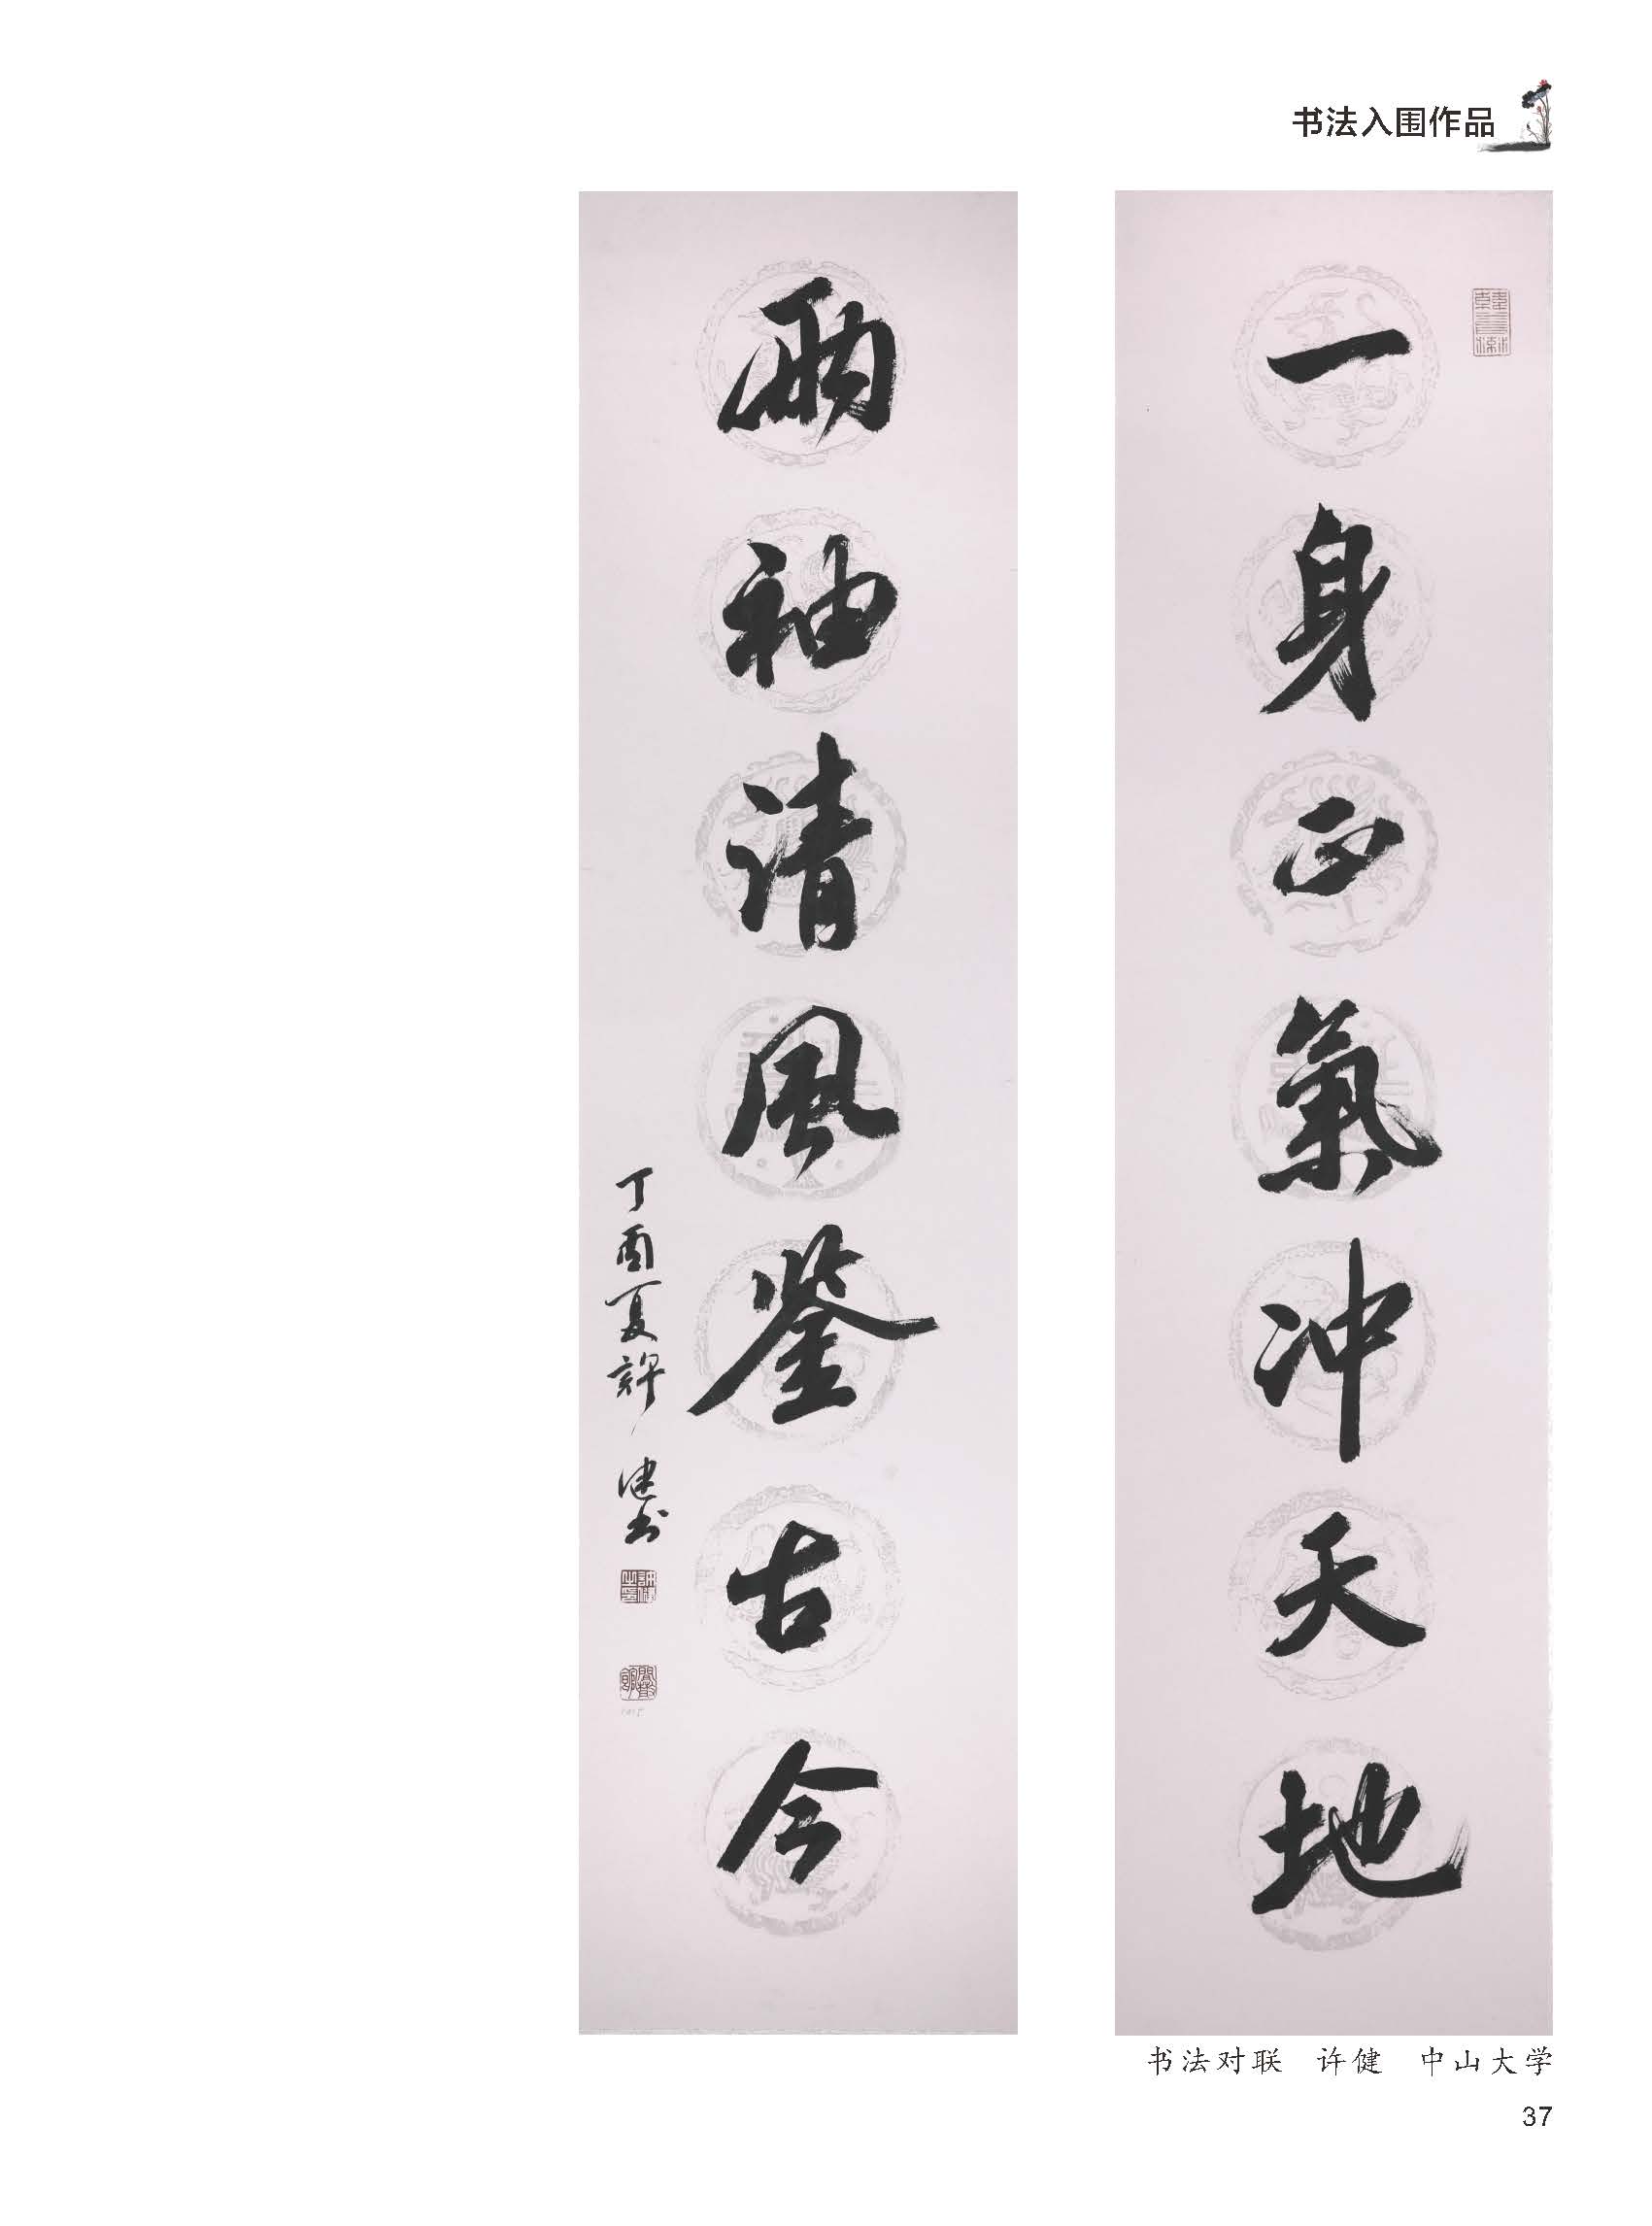 书法入围作品
一身正氣冲天地
兩袖清風鉴古今
丁酉夏許健书
书法对联 许健 中山大学
37